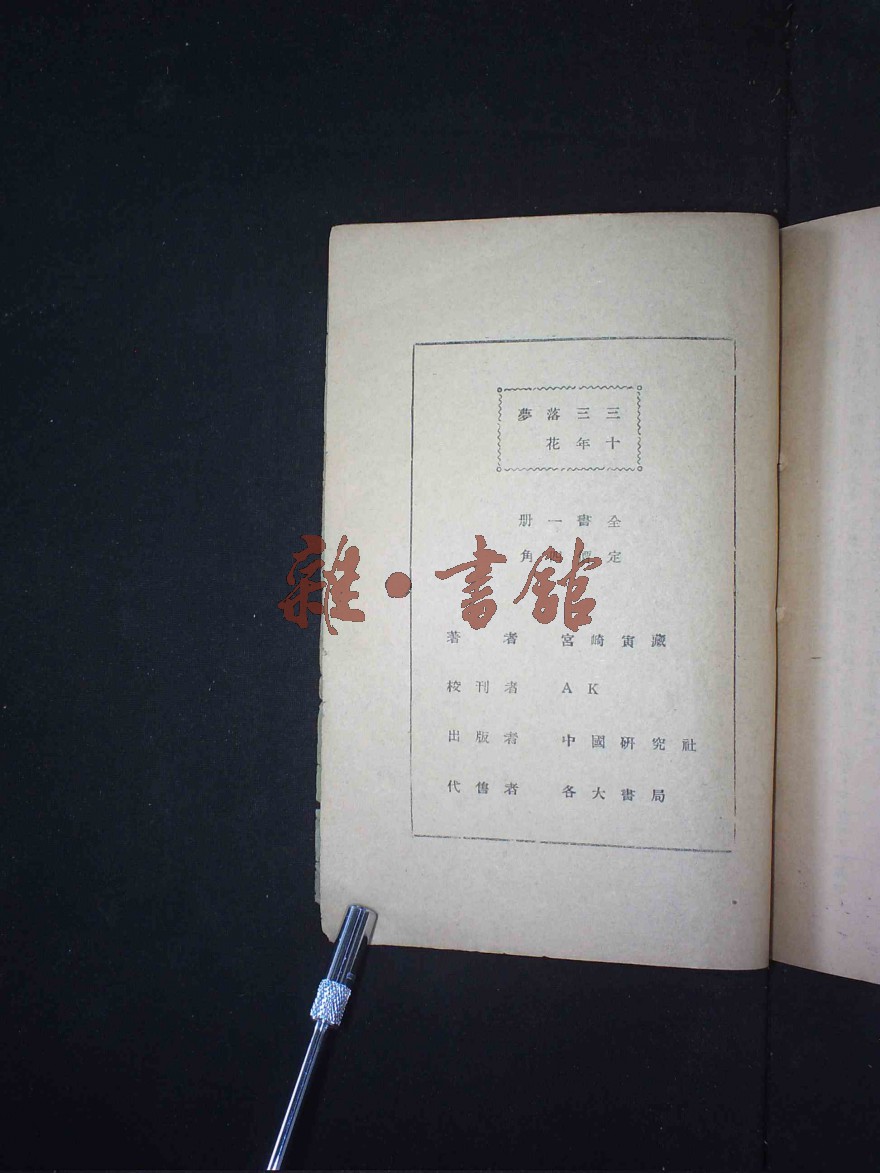 三十三年落花夢
全書一册
定價角
雜·書館
著者 宮崎寅藏
校刊者 AK
出版者 中國研究社
代售者 各大書局